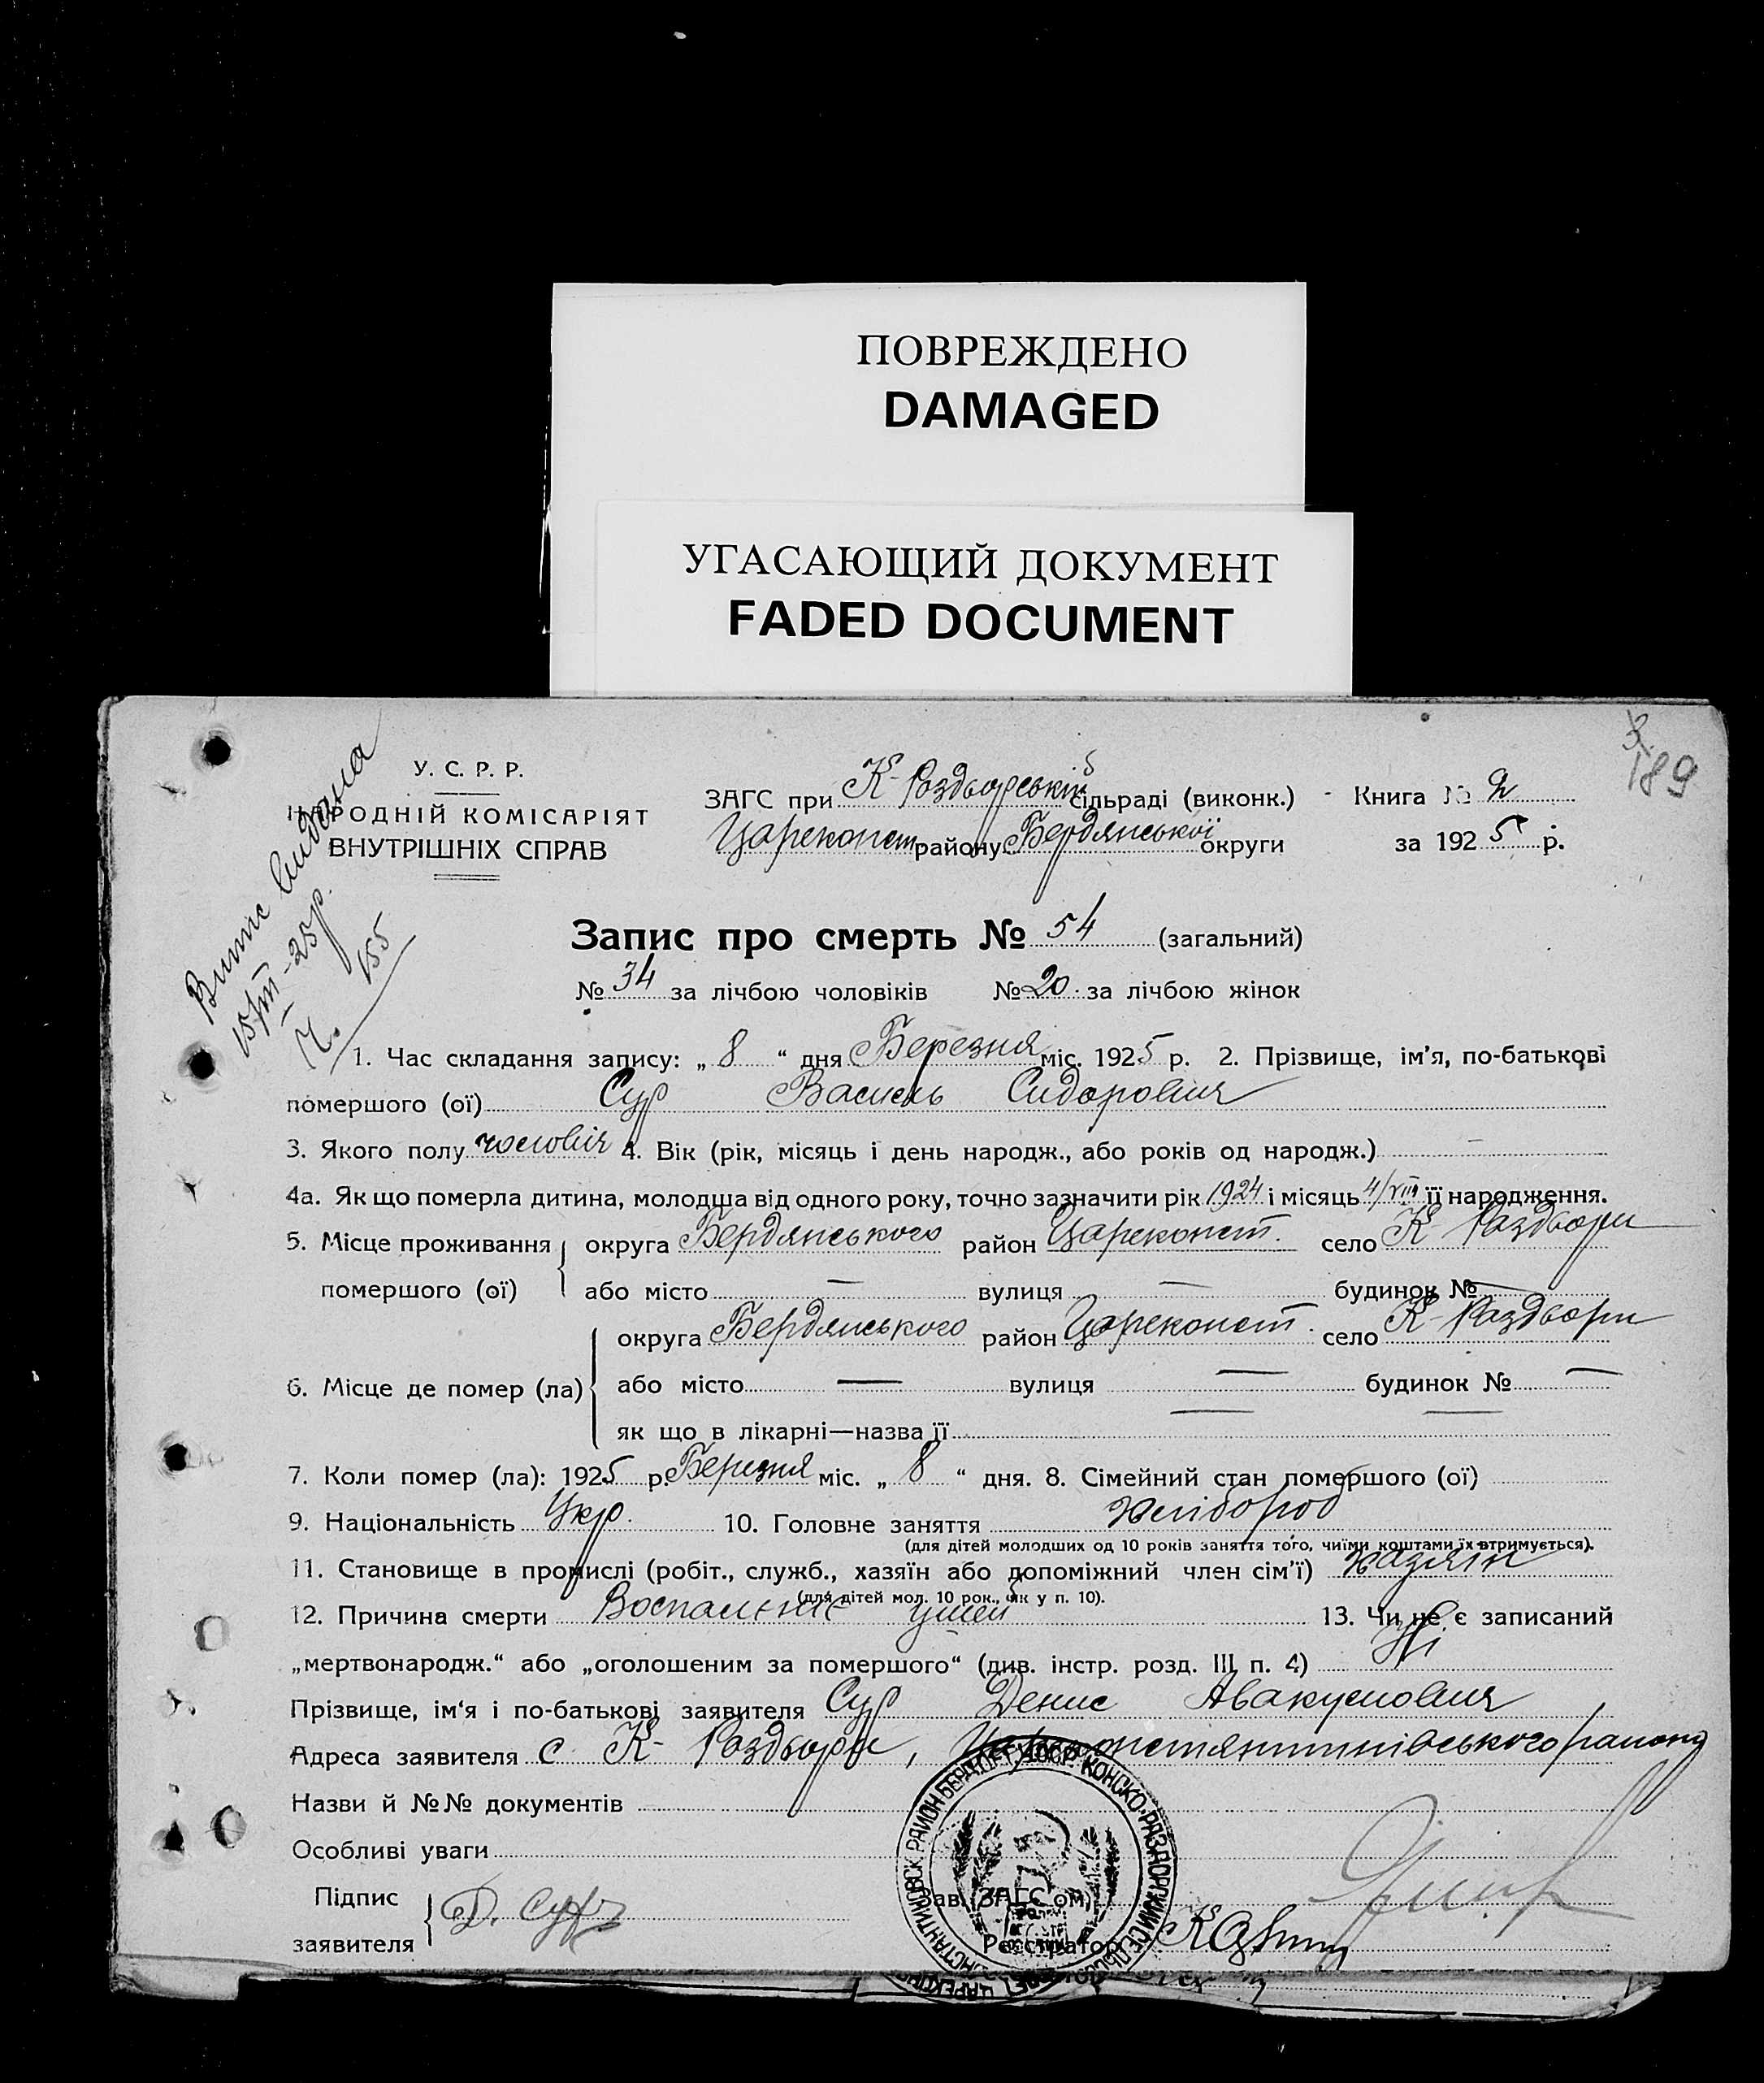 ПОВРЕЖДЕНО
DAMAGED
УГАСАЮЩИЙ ДОКУМЕНТ
FADED DOCUMENT
189
Витис видана
15/III-25р.
Ч. 155
У. С. Р. Р.
НАРОДНІЙ КОМІСАРІЯТ
ВНУТРІШНІХ СПРАВ
ЗАГС при К-Роздорській сільраді (виконк.)
Цареконст району Бердянської округи
Книга № 2
за 1925 р.
Запис про смерть № 54 (загальний)
№ 34 за лічбою чоловіків № 20 за лічбою жінок
1. Час складання запису: „ 8 “ дня Березня міс. 1925 р. 2. Прізвище, ім’я, по-батькові
помершого (ої) Сур Василь Сидорович
3. Якого полу чоловіч 4. Вік (рік, місяць і день народж., або років од народж.) —
4а. Як що померла дитина, молодша від одного року, точно зазначити рік 1924 і місяць 4/VIII її народження.
5. Місце проживання округа Бердянського район Цареконст. село К-Раздори
помершого (ої) або місто — вулиця — будинок № —
округа Бердянського район Цареконст. село К-Раздори
6. Місце де помер (ла) або місто — вулиця — будинок № —
як що в лікарні—назва її — —
7. Коли помер (ла): 1925 р. Березня міс. „ 8 “ дня. 8. Сімейний стан помершого (ої)
9. Національність Укр. 10. Головне заняття хлібороб
(для дітей молодших од 10 років заняття того, чиїми коштами їх втримується).
11. Становище в промислі (робіт., служб., хазяїн або допоміжний член сім’ї) хазяін
(для дітей мол. 10 рок., як у п. 10).
12. Причина смерти Воспаление ушей 13. Чи не є записаний
„мертвонародж.“ або „оголошеним за помершого“ (див. інстр. розд. III п. 4) Ні
Прізвище, ім‘я і по-батькові заявителя Сур Денис Авакумович
Адреса заявителя с К-Роздори, Цареконстянтинівського району
Назви й №№ документів
Особливі уваги
Підпис
заявителя Д. Сур
Зав. ЗАГС‘ом
Реєстратор